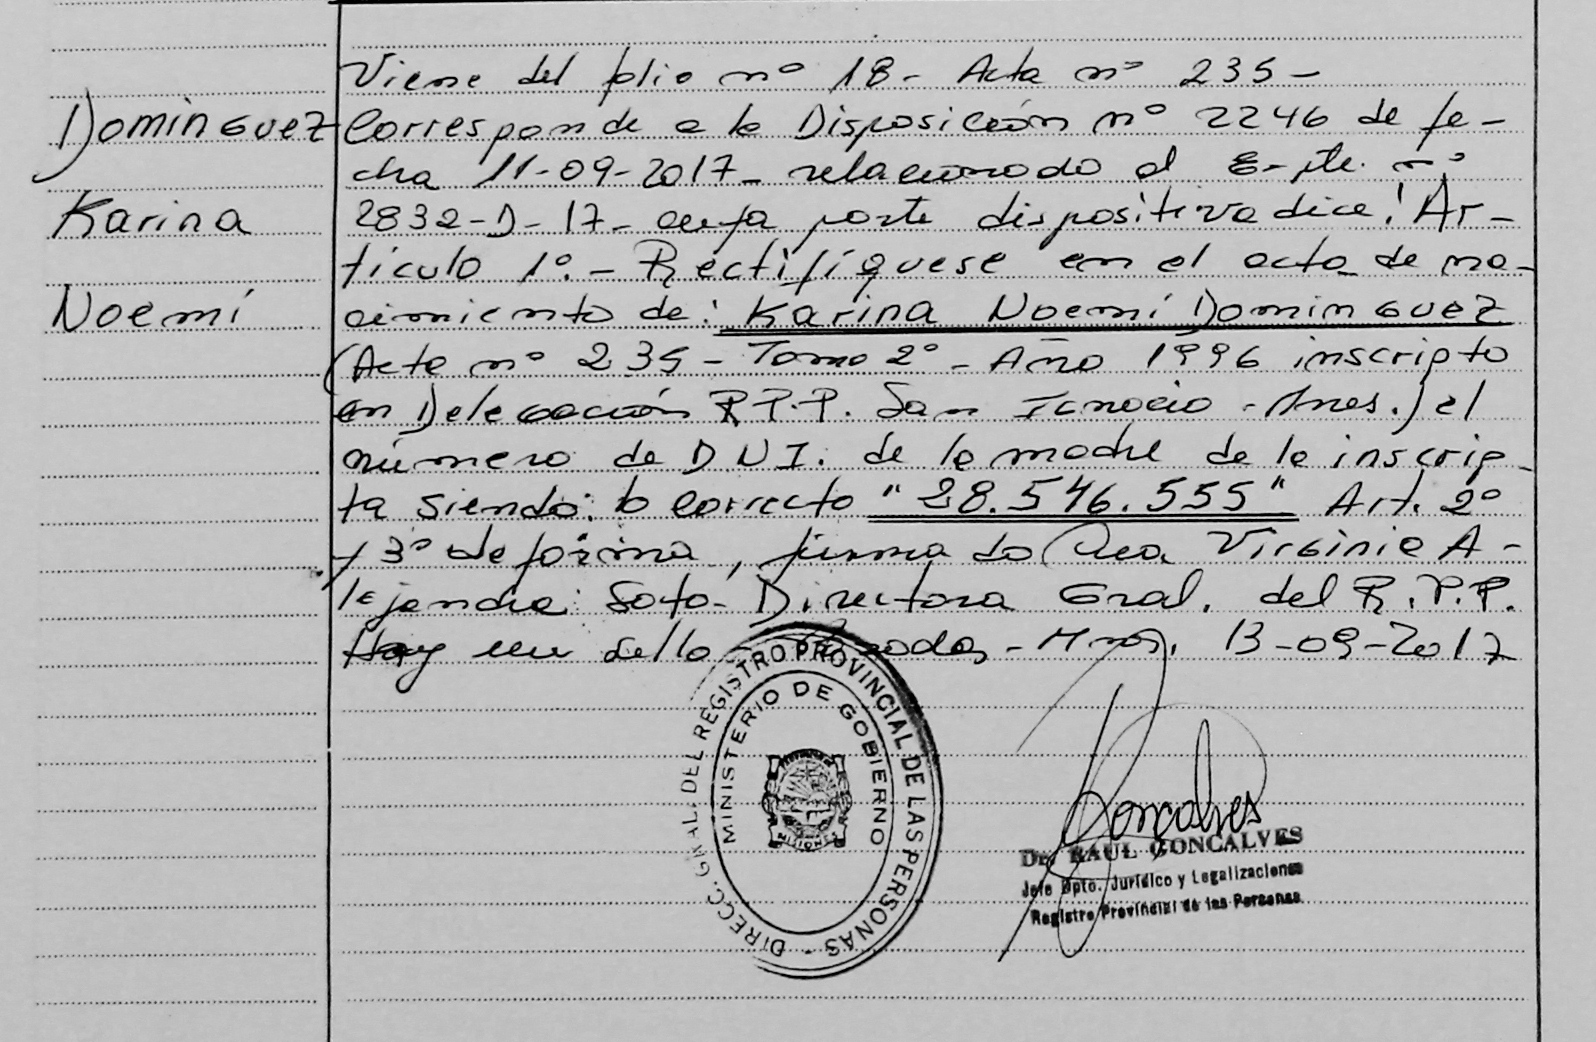 Viene del folio nº 18 - Acta nº 235 -
Dominguez
Corresponde a la Disposición nº 2246 de fe-
cha 11-09-2017 - relacionado al Expte. nº
Karina
2832-D-17 - cuya parte dispositiva dice: Ar-
tículo 1º. - Rectifíquese en el acta de na-
Noemí
cimiento de: Karina Noemí Dominguez
(Acta nº 235 - Tomo 2º - Año 1996 inscripto
en Delegación R.P.P. San Ignacio - Mnes.) el
número de DNI. de la madre de la inscrip-
ta siendo: lo correcto "28.546.555" Art. 2º
y 3º de forma, firmado Virginia A-
lejandra Soto - Directora Gral. del R.P.P.
Hay un sello - Posadas - Mnes. 13-09-2017
DIRECC. GRAL. DEL REGISTRO PROVINCIAL DE LAS PERSONAS -
MINISTERIO DE GOBIERNO
MISIONES
Goncalves
Dr. RAUL GONCALVES
Jefe Dpto. Jurídico y Legalizaciones
Registro Provincial de las Personas